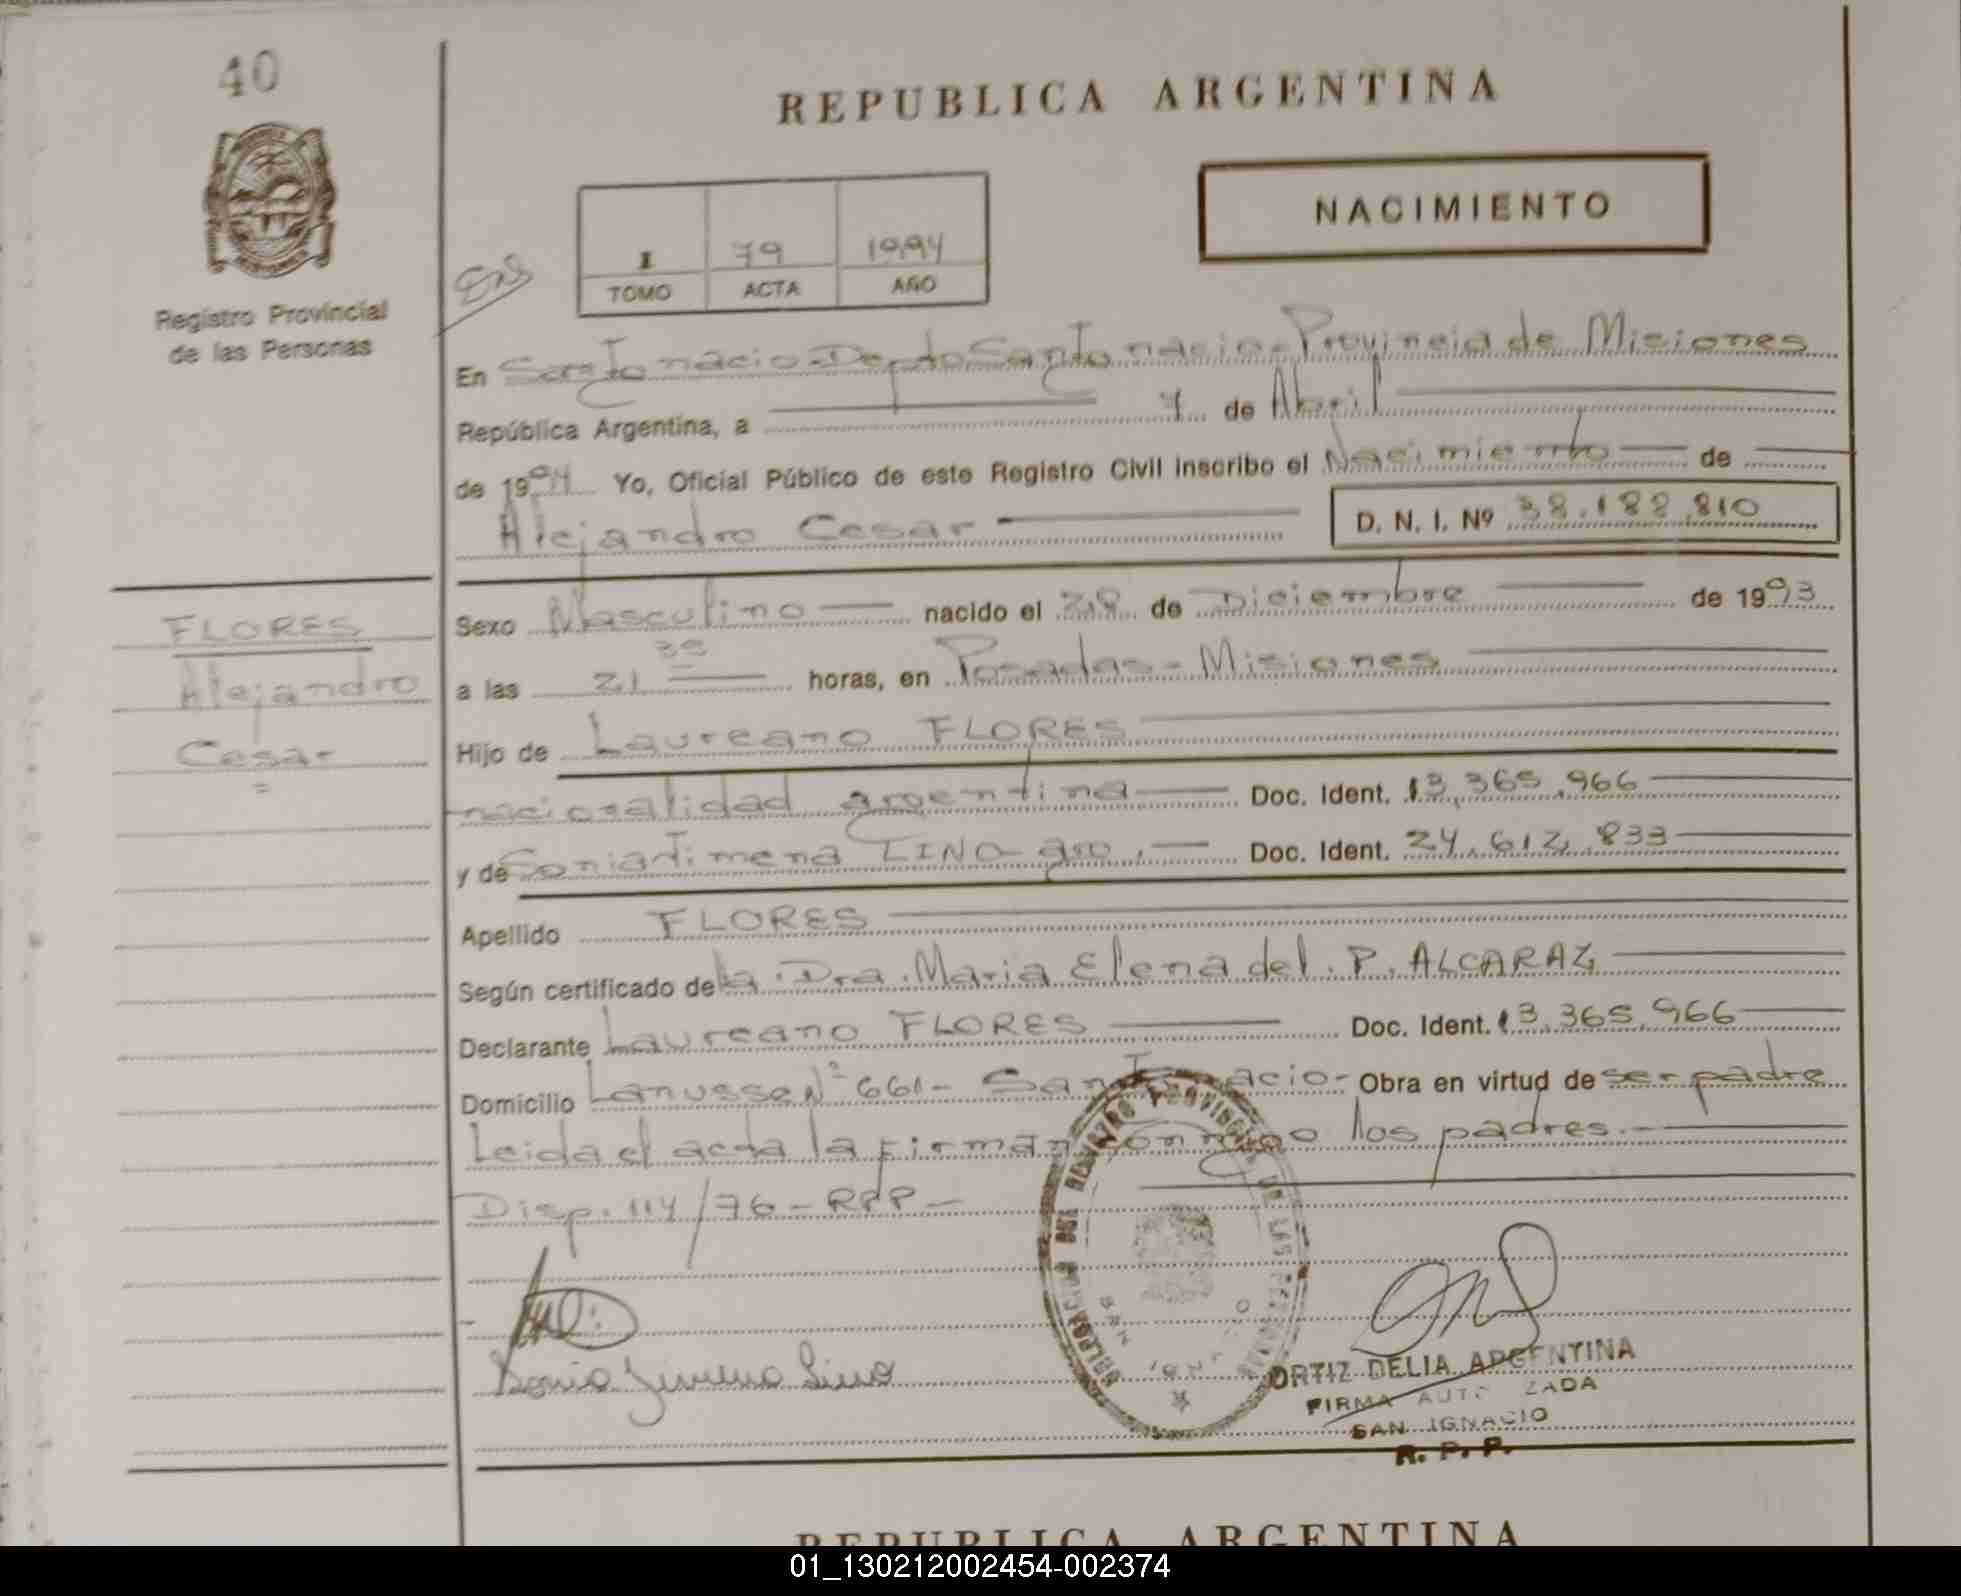 40
REPUBLICA ARGENTINA
NACIMIENTO
I 79 1994
TOMO ACTA AÑO
Registro Provincial
de las Personas
En San Ignacio - Depto San Ignacio - Provincia de Misiones
República Argentina, a 7 de Abril
de 1994 Yo, Oficial Público de este Registro Civil inscribo el Nacimiento de
Alejandro Cesar D. N. I. Nº 38.188.810
FLORES
Alejandro
Cesar
Sexo Masculino nacido el 28 de Diciembre de 1993
a las 21 35 horas, en Posadas - Misiones
Hijo de Laureano FLORES
nacionalidad argentina Doc. Ident. 13.365.966
y de Sonia Jimena LINO - arg. Doc. Ident. 24.612.833
Apellido FLORES
Según certificado de la Dra. Maria Elena del P. ALCARAZ
Declarante Laureano FLORES Doc. Ident. 13.365.966
Domicilio Lanusse Nº 661 - San Ignacio - Obra en virtud de ser padre
Leida el acta la firman conmigo los padres.
Disp. 114/76 - RPP -
DELEGACION DEL REGISTRO PROVINCIAL DE LAS PERSONAS
SAN IGNACIO
Sonia Jimena Lino
ORTIZ DELIA ARGENTINA
FIRMA AUTORIZADA
SAN IGNACIO
R. P. P.
REPUBLICA ARGENTINA
01_130212002454-002374